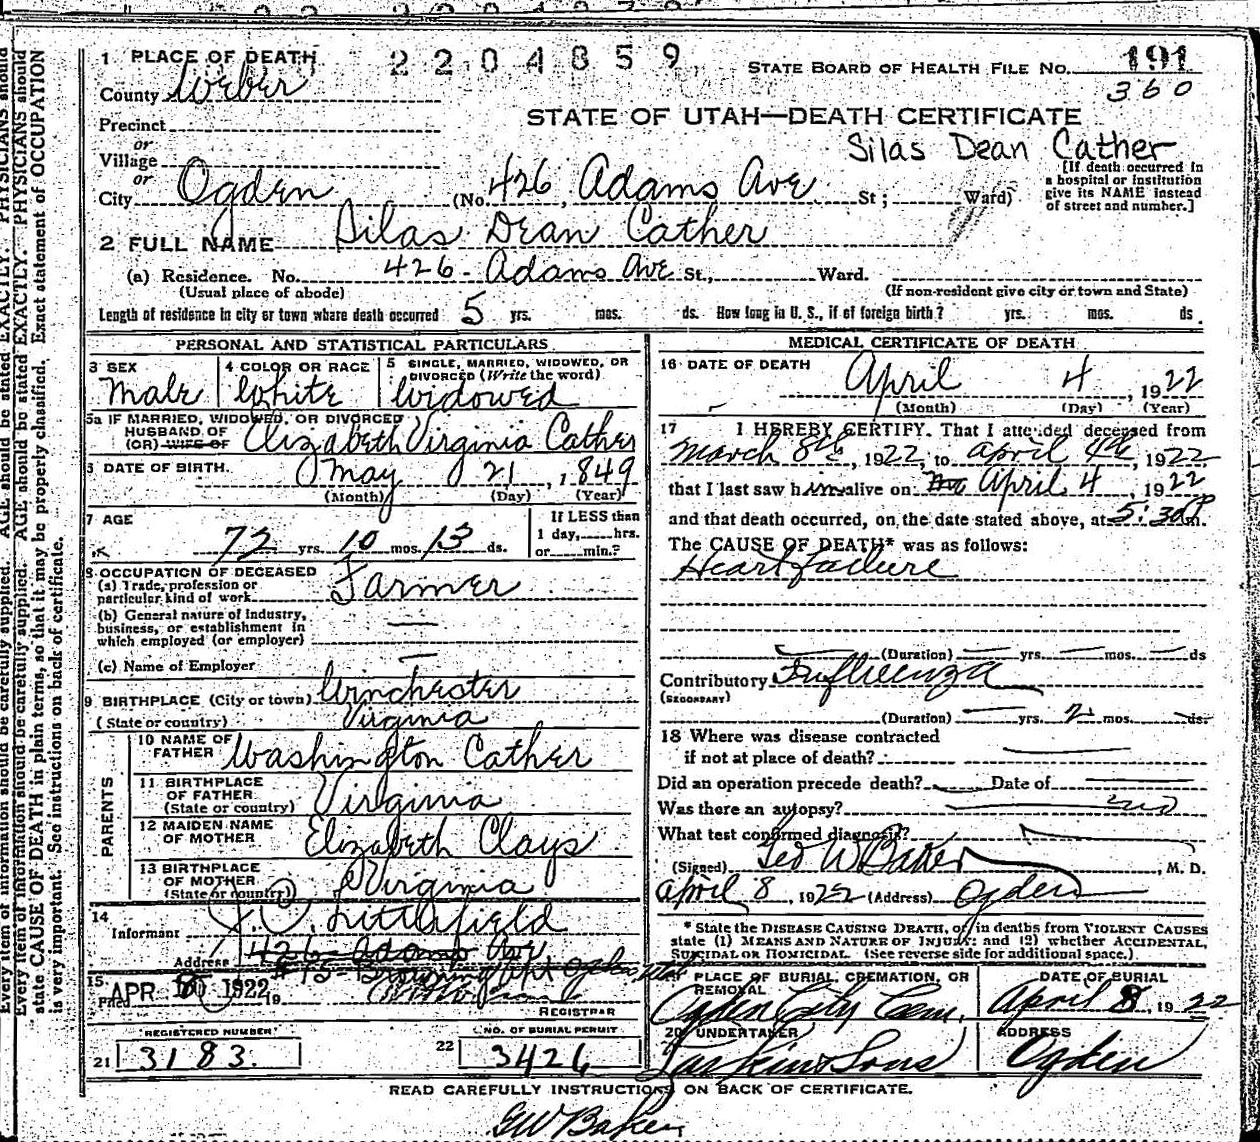 1 PLACE OF DEATH 2204859 STATE BOARD OF HEALTH FILE NO. 191
County Weber 360
Precinct STATE OF UTAH—DEATH CERTIFICATE
or
Village Silas Dean Cather
or
City Ogden (No. 426, Adams Ave St; Ward) [If death occurred in a hospital or institution give its NAME instead of street and number.]
2 FULL NAME Silas Dean Cather
(a) Residence. No. 426 - Adams Ave St., Ward.
(Usual place of abode) (If non-resident give city or town and State)
Length of residence in city or town where death occurred 5 yrs. mos. ds. How long in U. S., if of foreign birth? yrs. mos. ds.
PERSONAL AND STATISTICAL PARTICULARS
3 SEX 4 COLOR OR RACE 5 SINGLE, MARRIED, WIDOWED, OR DIVORCED (Write the word)
Male White Widowed
5a IF MARRIED, WIDOWED, OR DIVORCED
HUSBAND OF
(OR) WIFE OF Elizabeth Virginia Cather
6 DATE OF BIRTH. May 21, 1849
(Month) (Day) (Year)
7 AGE If LESS than
72 yrs. 10 mos. 13 ds. 1 day, hrs.
or min.?
8 OCCUPATION OF DECEASED
(a) Trade, profession or particular kind of work Farmer
(b) General nature of industry, business, or establishment in which employed (or employer) —
(c) Name of Employer —
9 BIRTHPLACE (City or town) Winchester
(State or country) Virginia
PARENTS
10 NAME OF FATHER Washington Cather
11 BIRTHPLACE OF FATHER (State or country) Virginia
12 MAIDEN NAME OF MOTHER Elizabeth Clays
13 BIRTHPLACE OF MOTHER (State or country) Virginia
14
Informant J. C. Littlefield
Address 426 Adams Ave
15
Filed APR 1922 19
REGISTRAR
REGISTERED NUMBER NO. OF BURIAL PERMIT
21 3183. 22 3426
MEDICAL CERTIFICATE OF DEATH
16 DATE OF DEATH April 4, 1922
(Month) (Day) (Year)
17 I HEREBY CERTIFY. That I attended deceased from
March 8th, 1922, to April 4th, 1922
that I last saw him alive on April 4, 1922
and that death occurred, on the date stated above, at 5:30 P m.
The CAUSE OF DEATH* was as follows:
Heart failure
(Duration) — yrs. — mos. — ds
Contributory Influenza
(SECONDARY)
(Duration) — yrs. 2 mos. — ds.
18 Where was disease contracted
if not at place of death?
Did an operation precede death? Date of
Was there an autopsy? no
What test confirmed diagnosis?
(Signed) Geo W Baker, M. D.
April 8, 1922 (Address) Ogden
* State the DISEASE CAUSING DEATH, or, in deaths from VIOLENT CAUSES
state (1) MEANS AND NATURE OF INJURY; and (2) whether ACCIDENTAL,
SUICIDAL OR HOMICIDAL. (See reverse side for additional space.)
PLACE OF BURIAL, CREMATION, OR REMOVAL DATE OF BURIAL
Ogden City Cem. April 8, 1922
20 UNDERTAKER ADDRESS
Larkin & Sons Ogden
READ CAREFULLY INSTRUCTIONS ON BACK OF CERTIFICATE.
GW Baker
Every item of information should be carefully supplied. AGE should be stated EXACTLY. PHYSICIANS should
state CAUSE OF DEATH in plain terms, so that it may be properly classified. Exact statement of OCCUPATION
is very important. See instructions on back of certificate.